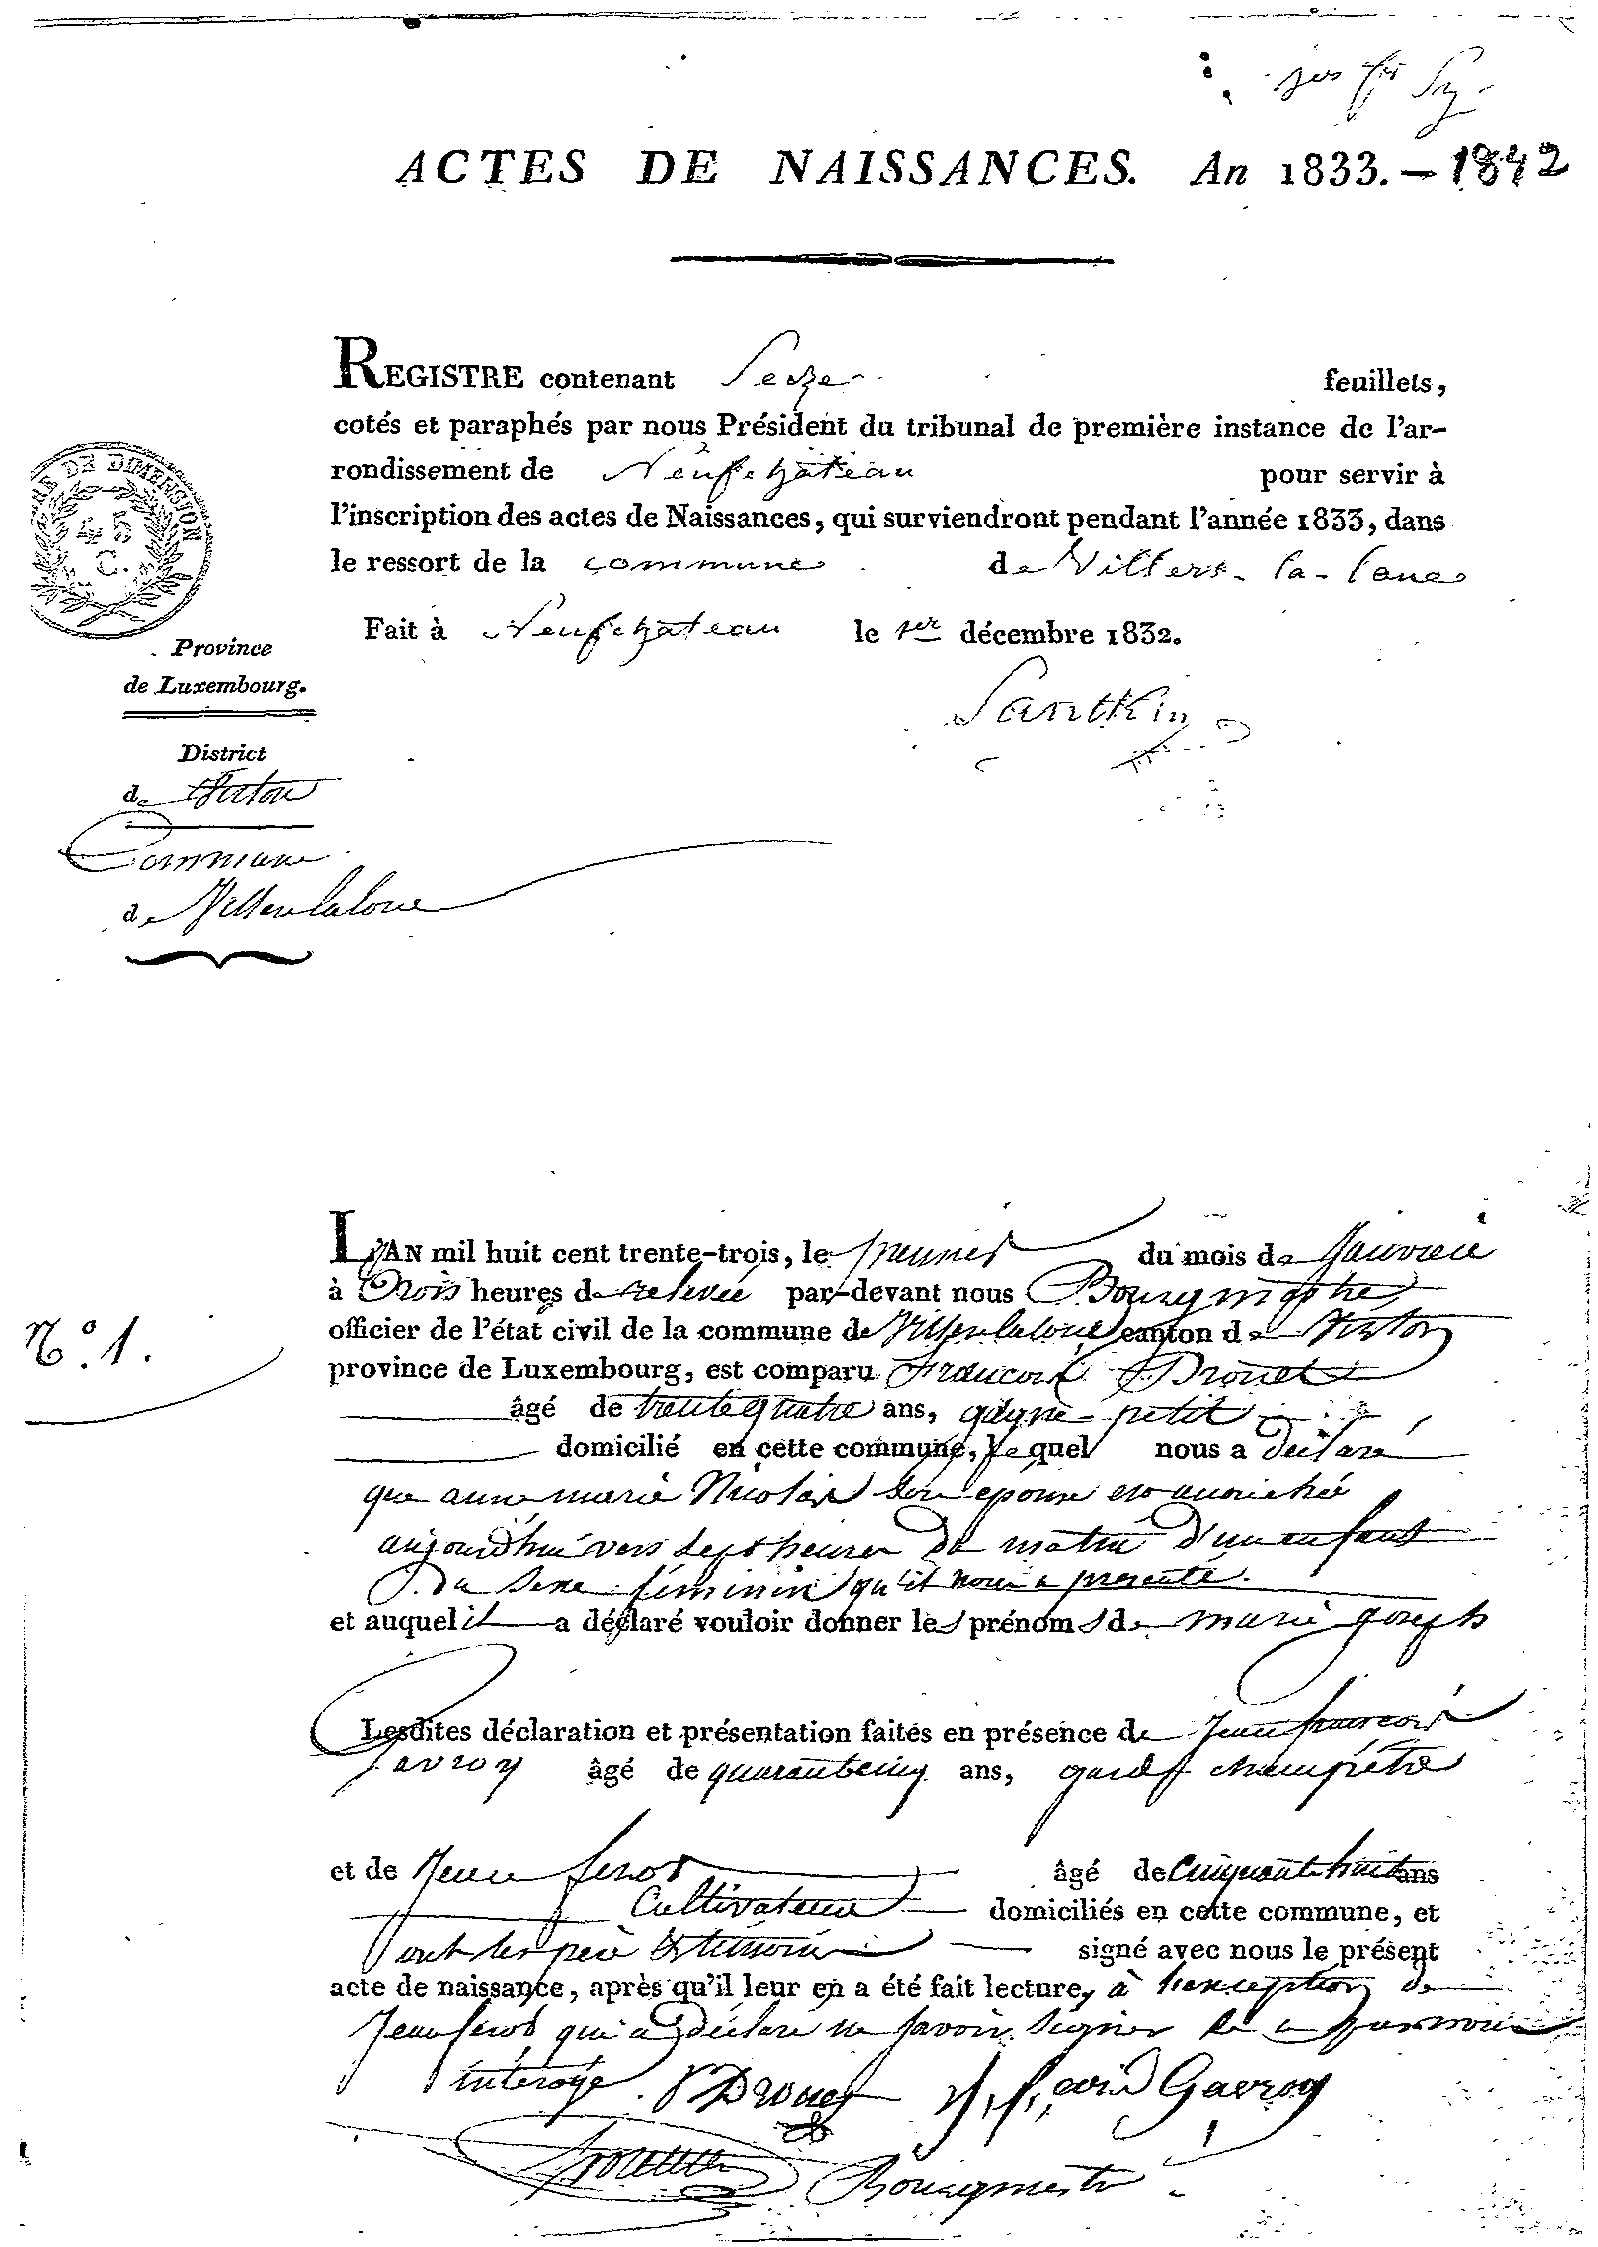 1er ftt
ACTES DE NAISSANCES. An 1833. – 1842
REGISTRE contenant Seize feuillets,
cotés et paraphés par nous Président du tribunal de première instance de l'ar-
rondissement de Neufchâteau pour servir à
l'inscription des actes de Naissances, qui surviendront pendant l'année 1833, dans
le ressort de la commune de Villers-la-loue
Fait à Neufchateau le 1er décembre 1832.
Santkin
DE DIMENSION
45
C.
Province
de Luxembourg.
District
de Virton
Commune
de Villers laloue
N.º 1.
L'AN mil huit cent trente-trois, le premier du mois de Janvier
à Trois heures de relevée par-devant nous Bourgmestre
officier de l'état civil de la commune de Villers laloue canton de Virton
province de Luxembourg, est comparu Francois Drouet
âgé de trente quatre ans, gagne petit
domicilié en cette commune, le quel nous a déclaré
que anne marie Nicolas son epouse est accouchée
aujourd'hui vers sept heures du matin d'un enfant
du sexe féminin qu'il nous a presenté.
et auquel il a déclaré vouloir donner les prénoms de marie joseph
Lesdites déclaration et présentation faites en présence de Jean francois
Gavroy âgé de quarante cinq ans, garde champêtre
et de Jean âgé de Cinquante huit ans
Cultivateur domiciliés en cette commune, et
ont les père et témoins signé avec nous le présent
acte de naissance, après qu'il leur en a été fait lecture, à l'exception de
Jean qui a déclaré ne savoir signer de ce par nous
interogé. F Drouet J. f. cois Gavroy
Bourgmestre